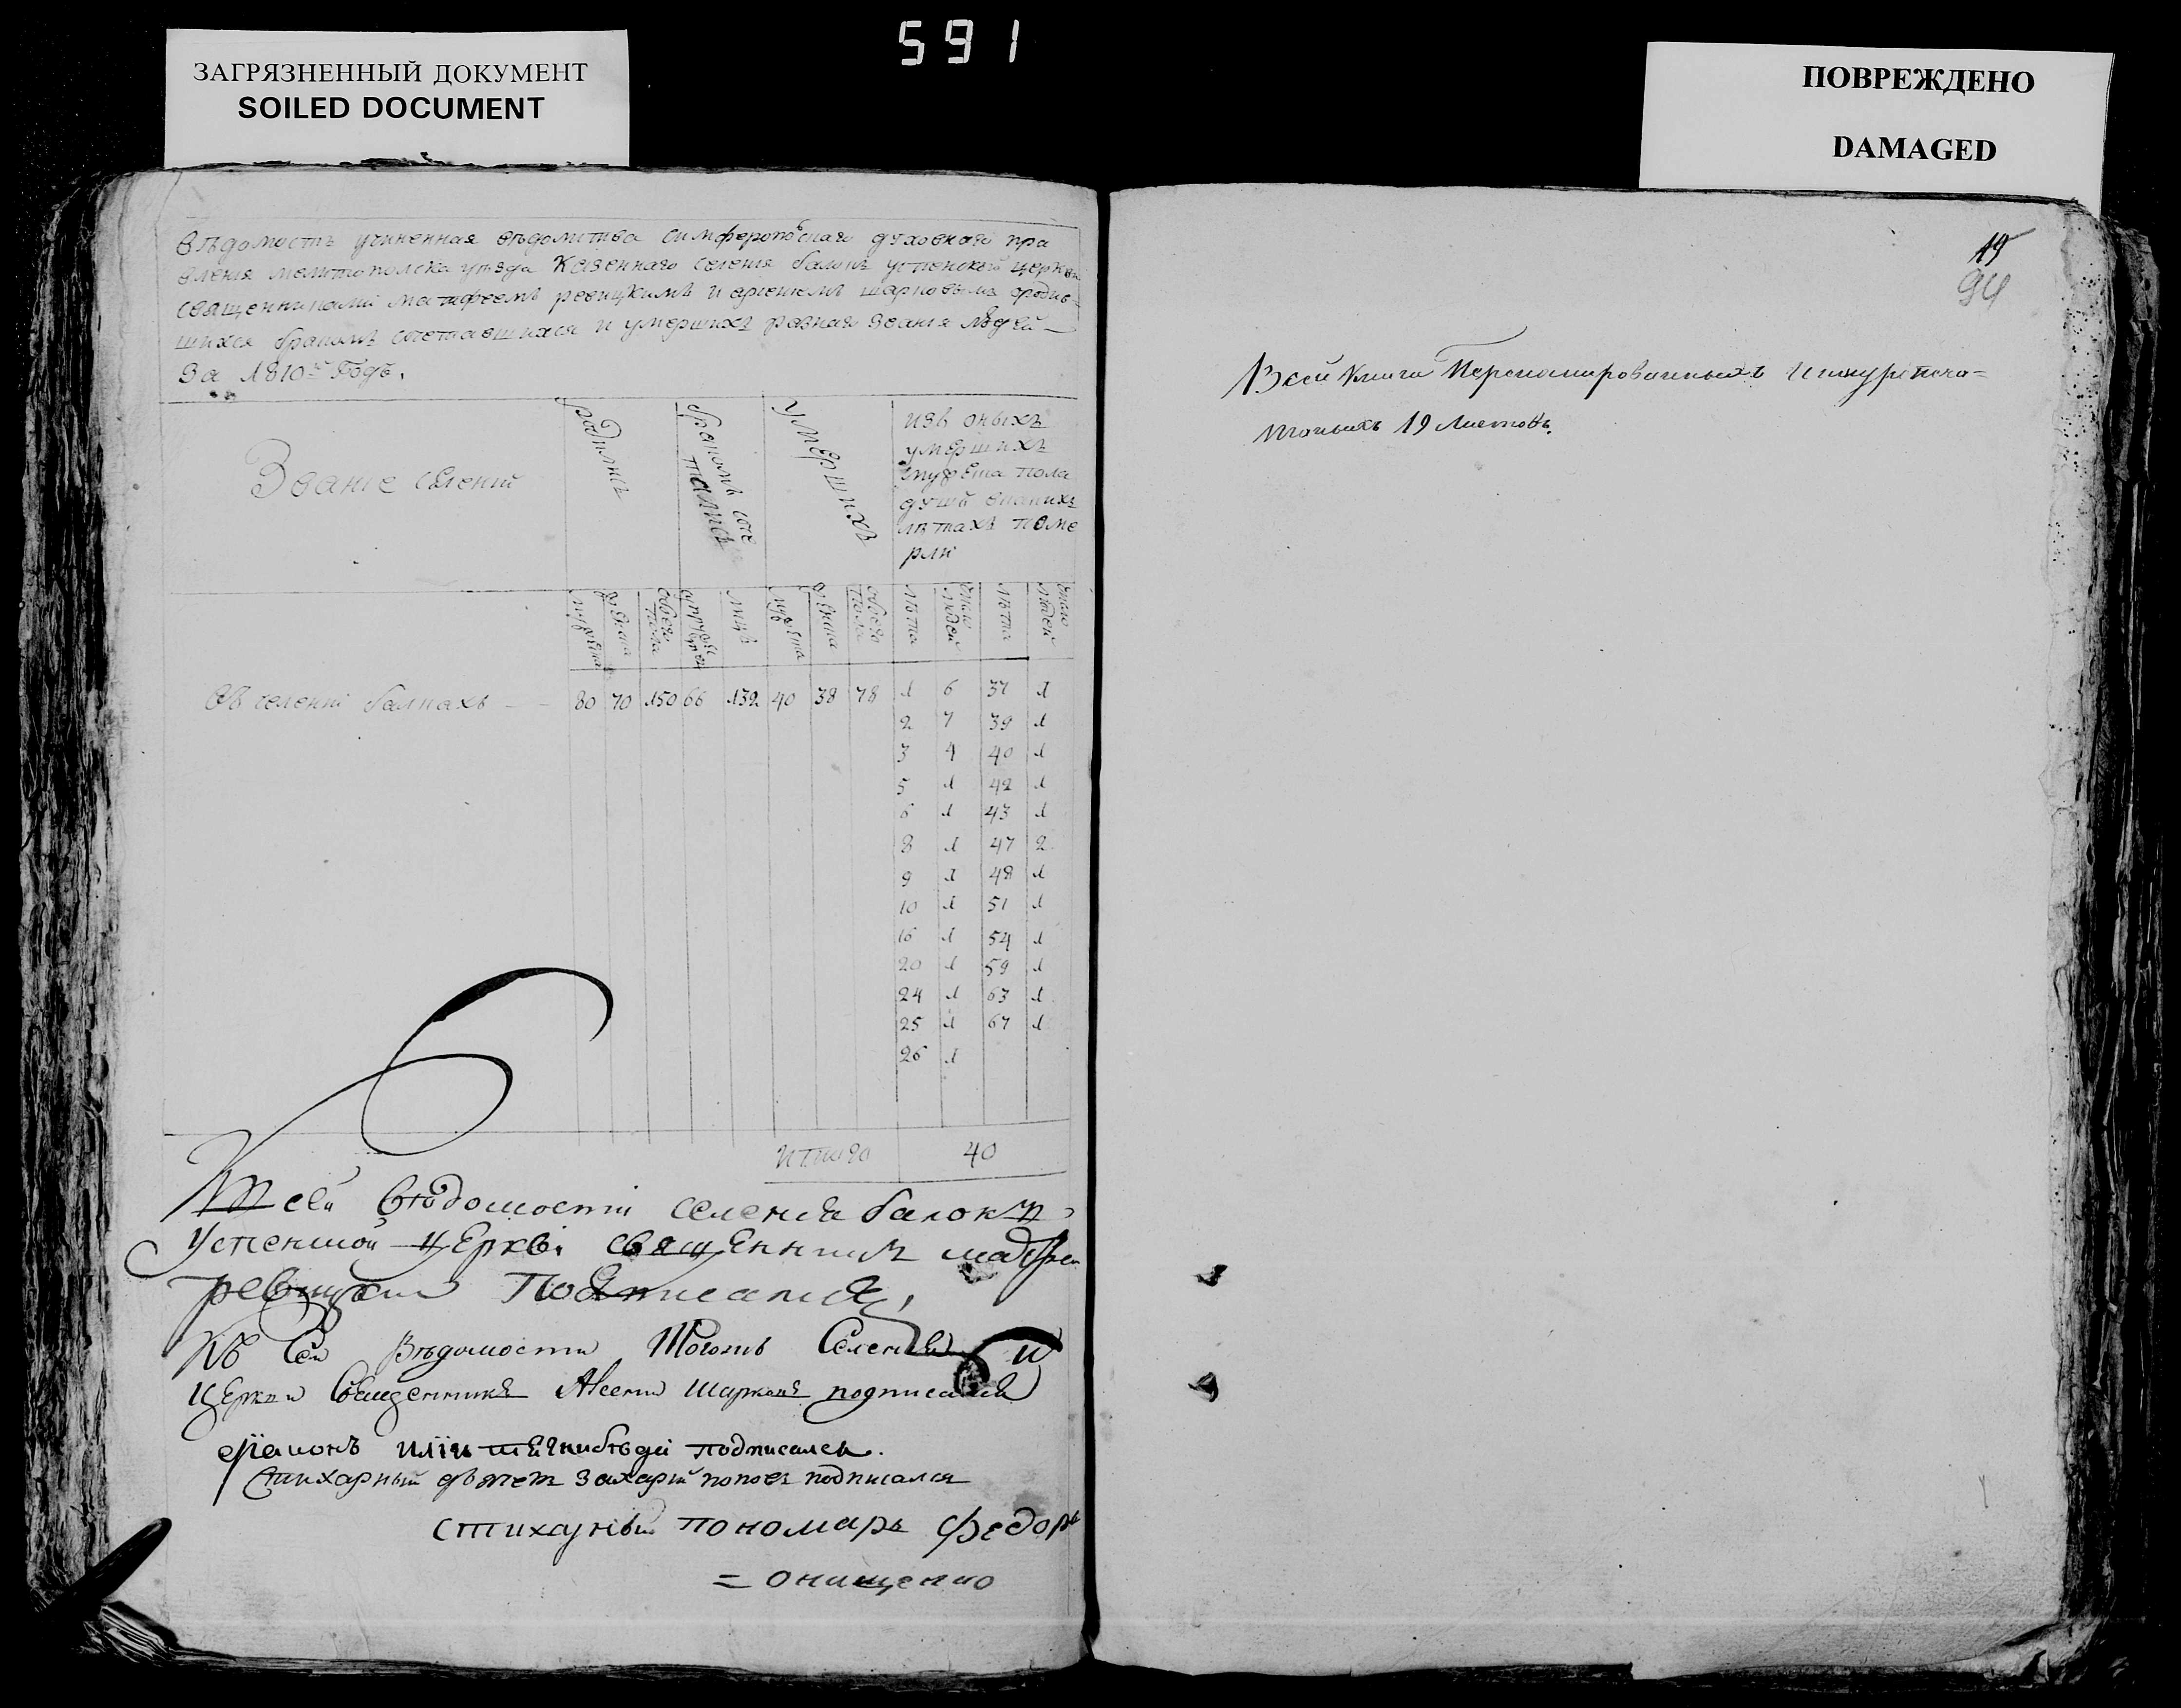 591
ЗАГРЯЗНЕННЫЙ ДОКУМЕНТ
SOILED DOCUMENT
ПОВРЕЖДЕНО
DAMAGED
Вѣдомость учиненная вѣдомства симферопольскаго духовнаго пра
вления мелитополска уѣзда казеннаго селения балокъ успенской церкви
священниками матфеемъ ревицкимъ и арсениемъ шарковымъ ородив=
шихся бракомъ сочетавшихся и умершихъ разнаго звания людей
За 1810й Годъ.
Звание селений
родились
бракомъ соче
тались
умершихъ
изъ оныхъ
умершихъ
мужеска пола
душъ в каких
лѣтахъ поме
рли
мужеска
женска
обоего пола
супружествъ
лицъ
мужеска
женска
обоего пола
лѣта
число людей
лѣта
число людей
Въ селении балкахъ - - 80 70 150 66 132 40 38 78 1 6 37 1
2 7 39 1
3 4 40 1
5 1 42 1
6 1 43 1
8 1 47 2
9 1 48 1
10 1 51 1
16 1 54 1
20 1 59 1
24 1 63 1
25 1 67 1
26 1
итого 40
К сей вѣдомости селения балокъ
успенской церкви священникъ матфей
ревицкий подписался,
Къ сей Вѣдомости тогожъ Селения и
церкви священникъ Арсений Шарковъ подписался
диаконъ подписался.
Стихарный дьячекъ захарий поповъ подписался
стихарный пономарь федоръ
= онищенко
19
94
В сей книги перенумированныхъ и шнуропеча=
танныхъ 19 листовъ.